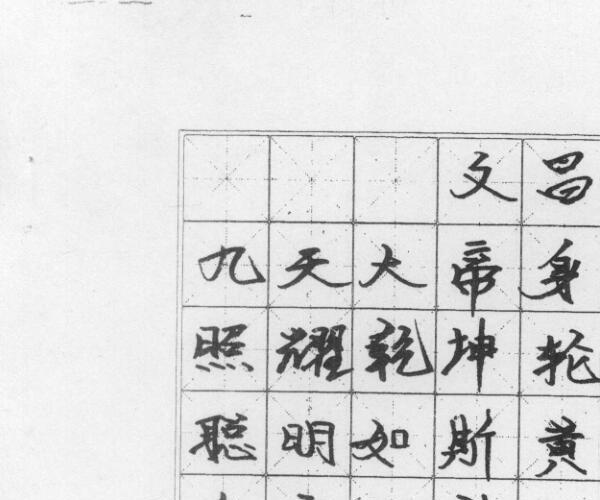 文昌
九天大帝身
照耀乾坤轮
聪明如斯黄